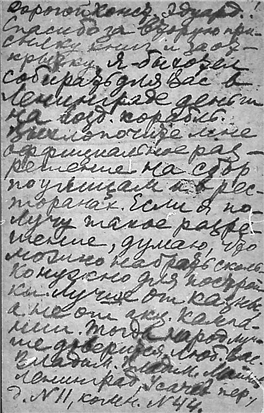 Дорогой Конст. Эдуард.!
Спасибо за вторую при-
сылку книг и за от-
крытку. Я бы хотел
собирать для Вас в
Ленинграде деньги
на возд. корабль.
Выхлопочите мне
официальное раз-
решение на сбор
по улицам и в рес-
торанах. Если я по-
лучу такое разре-
шение, думаю, что
можно набрать сколь
ко нужно для построй
ки. Лучше от казны,
а не от акц. компа-
нии. Тогда народ луч-
ше доверится. Люб. Вас
Владим.
Ленинград, Усачев пер.,
д. N 11, комн. N 44.